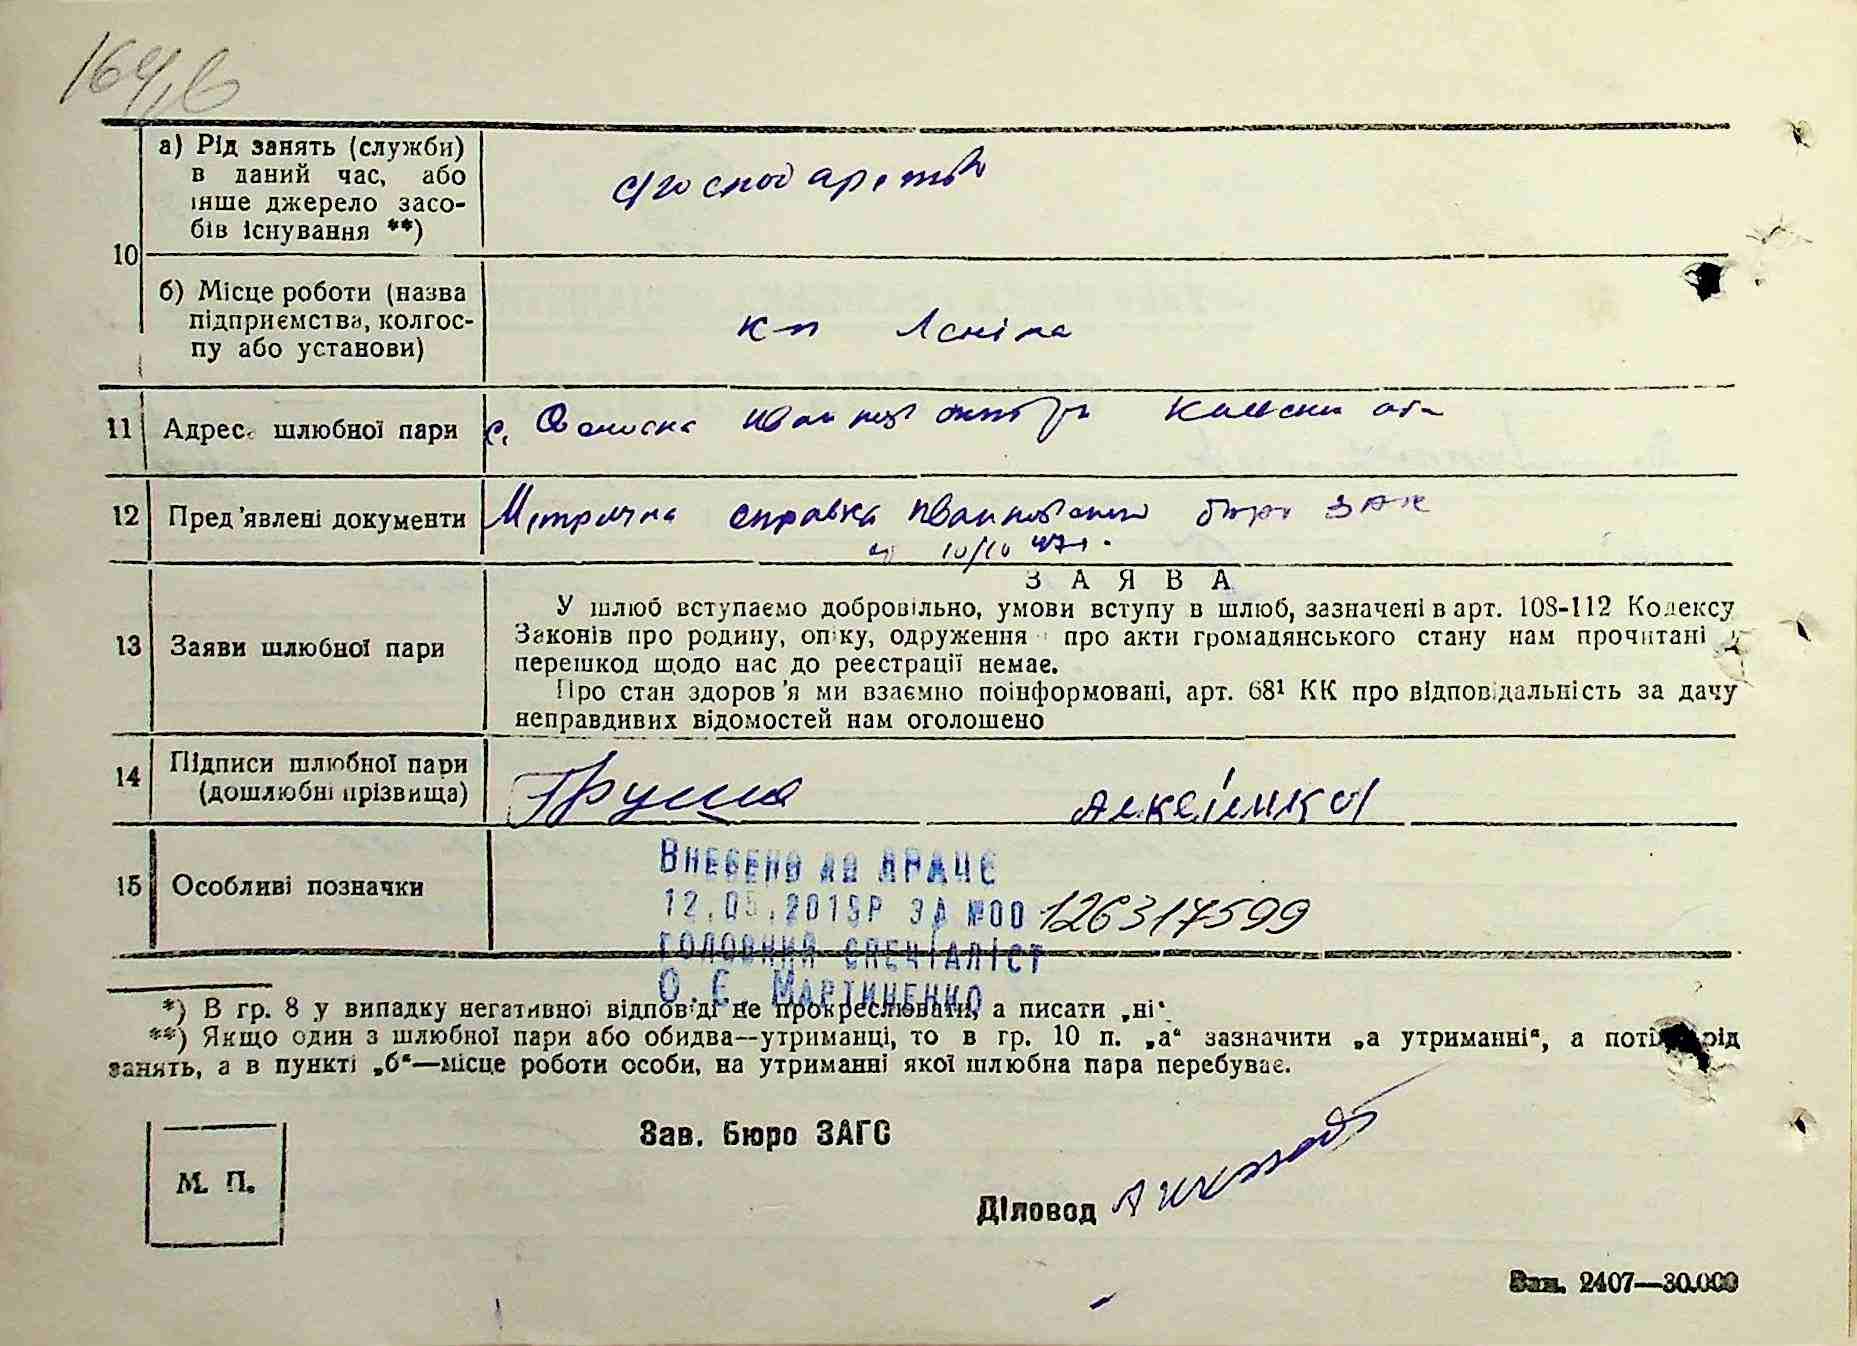 164,6
10 а) Рід занять (служби)
в даний час, або
інше джерело засо-
бів існування **)
с/господарство
б) Місце роботи (назва
підприємства, колгос-
пу або установи)
к-п Леніна
11 Адреса шлюбної пари с. Київська обл
12 Пред'явлені документи Метрична справка бюро ЗАГС
10/10 47 г.
ЗАЯВА
13 Заяви шлюбної пари
У шлюб вступаємо добровільно, умови вступу в шлюб, зазначені в арт. 108-112 Кодексу
Законів про родину, опіку, одруження і про акти громадянського стану нам прочитані
перешкод щодо нас до реєстрації немає.
Про стан здоров'я ми взаємно поінформовані, арт. 68¹ КК про відповідальність за дачу
неправдивих відомостей нам оголошено
14 Підписи шлюбної пари
(дошлюбні прізвища)
Груша
15 Особливі позначки
Внесено до ДРАЦС
12.05.2019Р ЗА №00 126317599
ГОЛОВНИЙ СПЕЦІАЛІСТ
О. Є. Мартиненко
*) В гр. 8 у випадку негативної відповіді не прокреслювати, а писати „ні“.
**) Якщо один з шлюбної пари або обидва—утриманці, то в гр. 10 п. „а“ зазначити „а утриманні“, а потім рід
занять, а в пункті „б“—місце роботи особи, на утриманні якої шлюбна пара перебуває.
Зав. Бюро ЗАГС
М. П.
Діловод
Зам. 2407—30.000